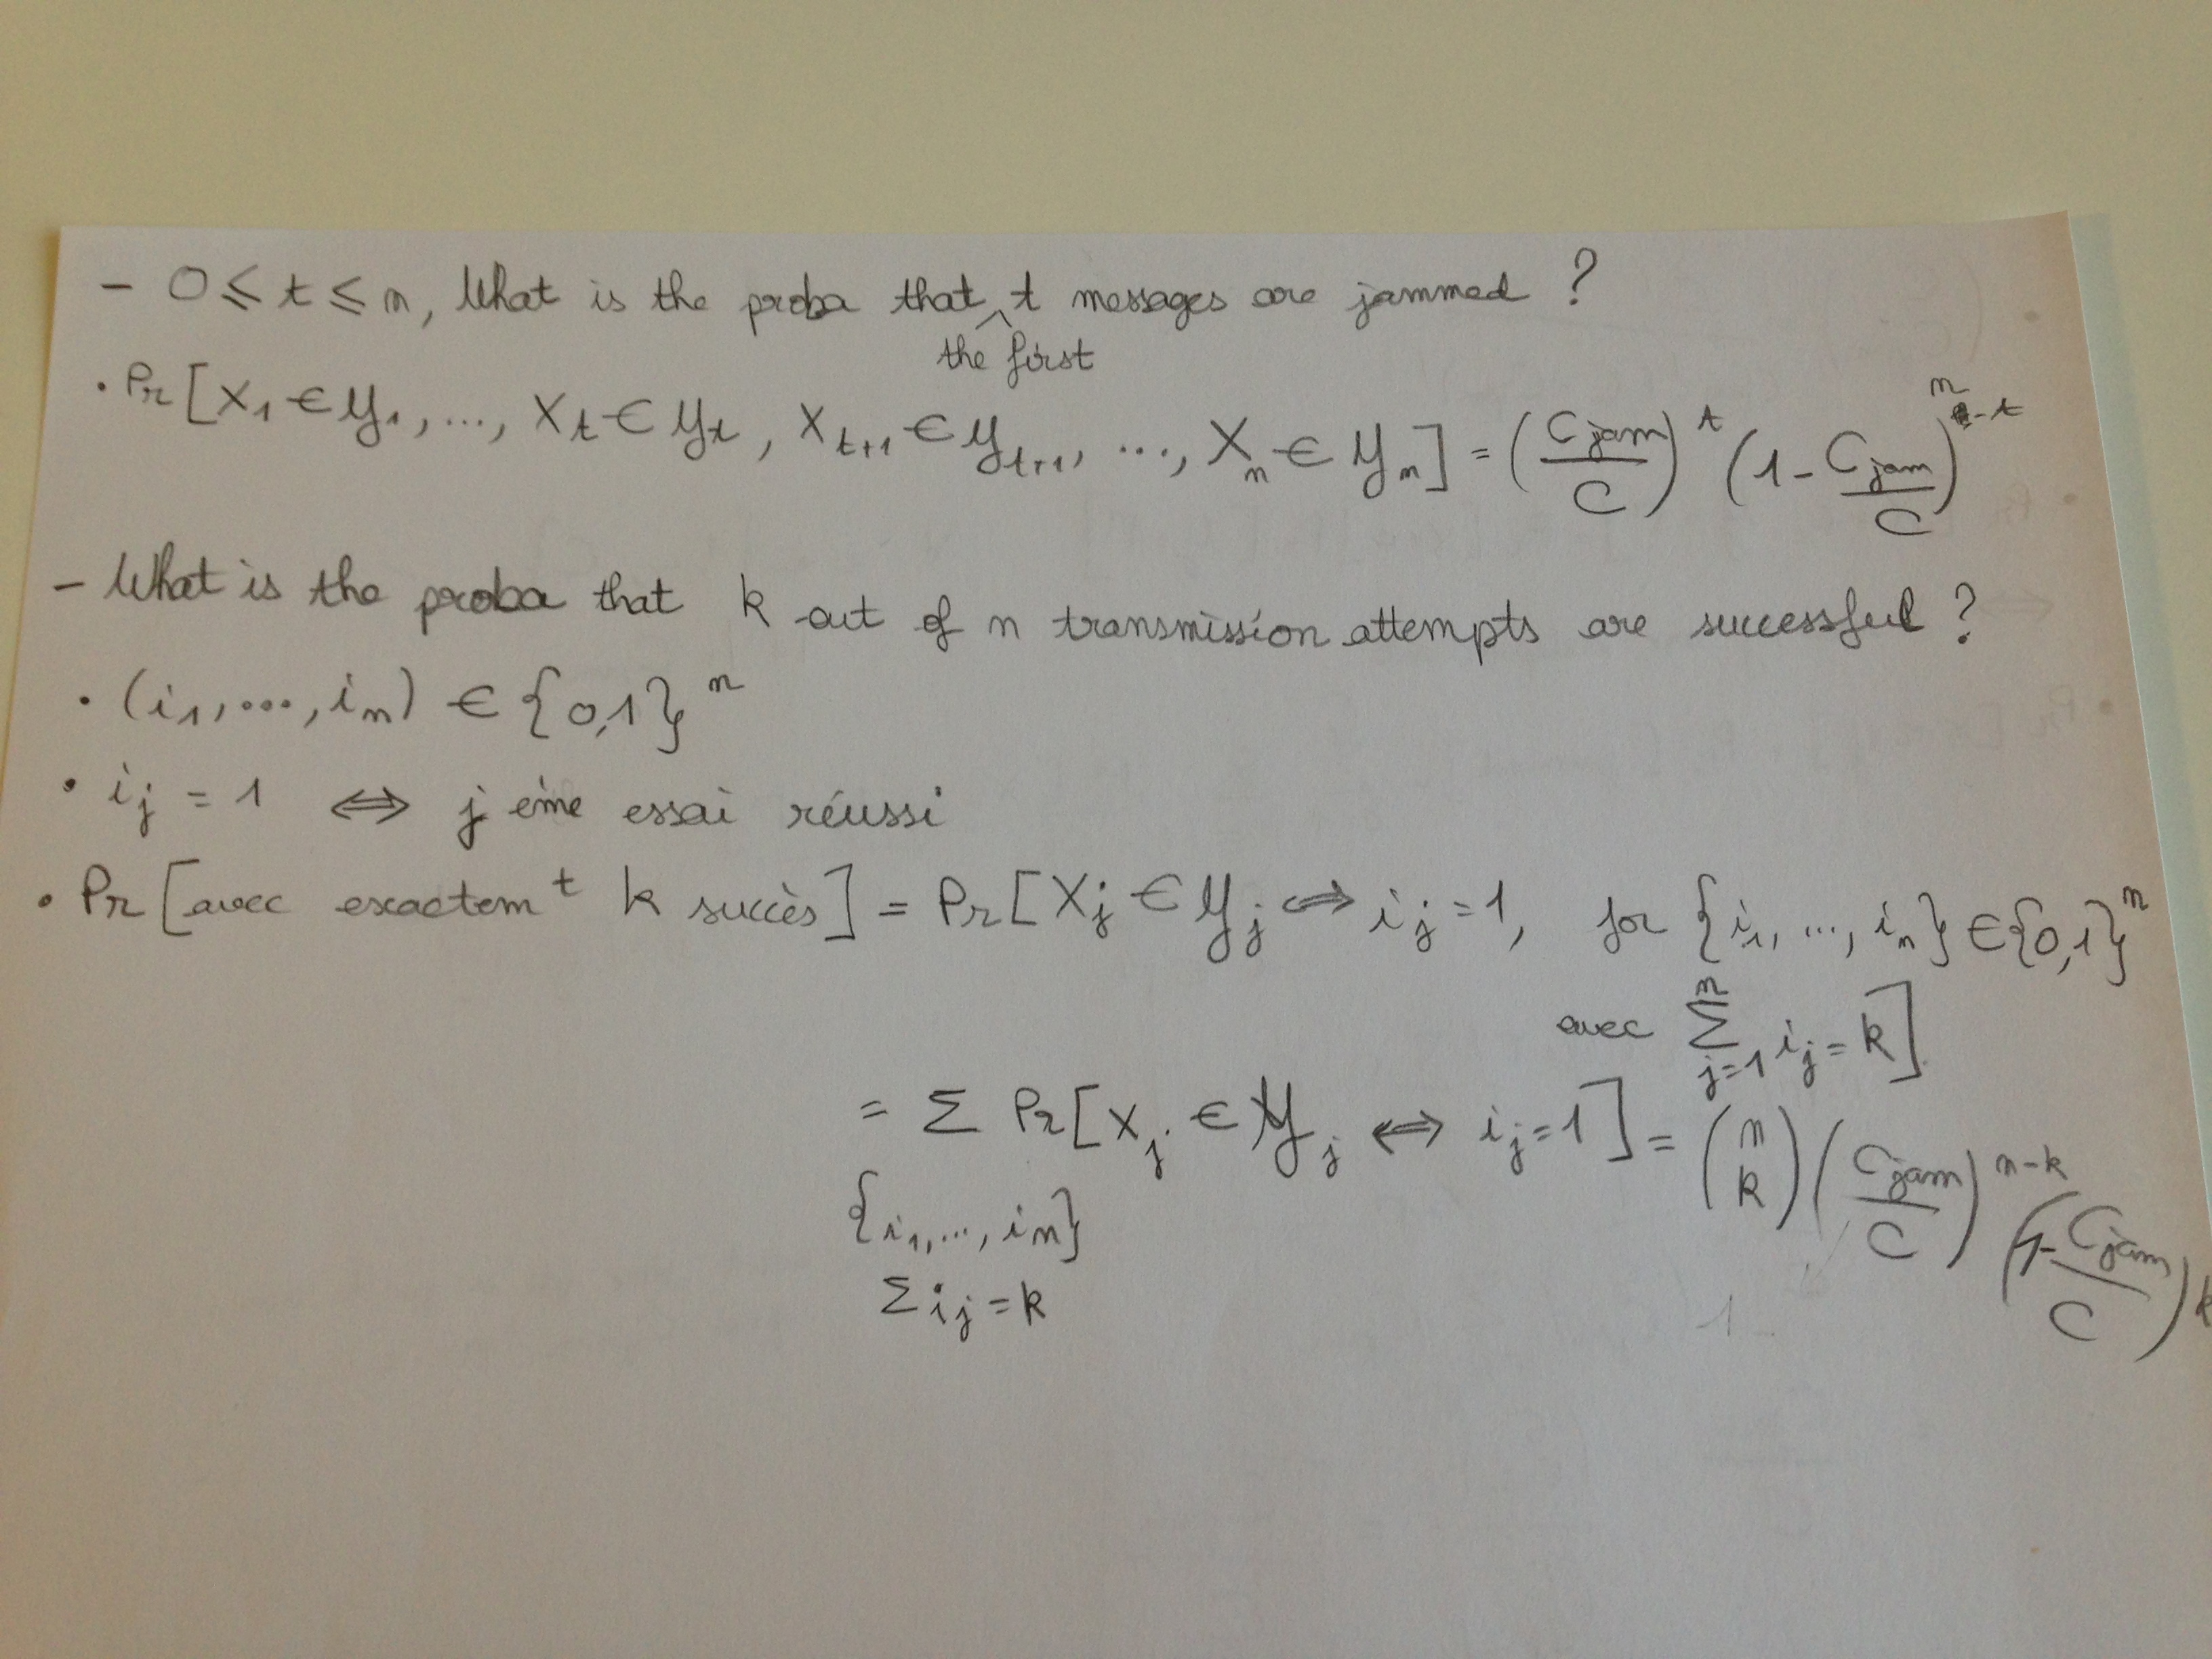 - 0 ⩽ t ⩽ n, What is the proba that the first t messages are jammed ?
• Pr [X₁ ∈ Y₁, ..., X_t ∈ Y_t, X_{t+1} ∈ Y_{t+1}, ..., X_n ∈ Y_n] = (C_jam / C)^t (1 - C_jam / C)^{n-t}
- What is the proba that k out of n transmission attempts are successful ?
• (i₁, ..., i_n) ∈ {0,1}^n
• i_j = 1 ⇔ j eime essai réussi
• Pr [avec exactem^t k succès] = Pr [X_j ∈ Y_j ⇔ i_j = 1, for {i₁, ..., i_n} ∈ {0,1}^n
avec ∑_{j=1}^n i_j = k]
= Σ Pr [X_j ∈ Y_j ⇔ i_j = 1] = (n k) (C_jam / C)^{n-k} (1 - C_jam / C)^k
{i₁, ..., i_n}
Σ i_j = k